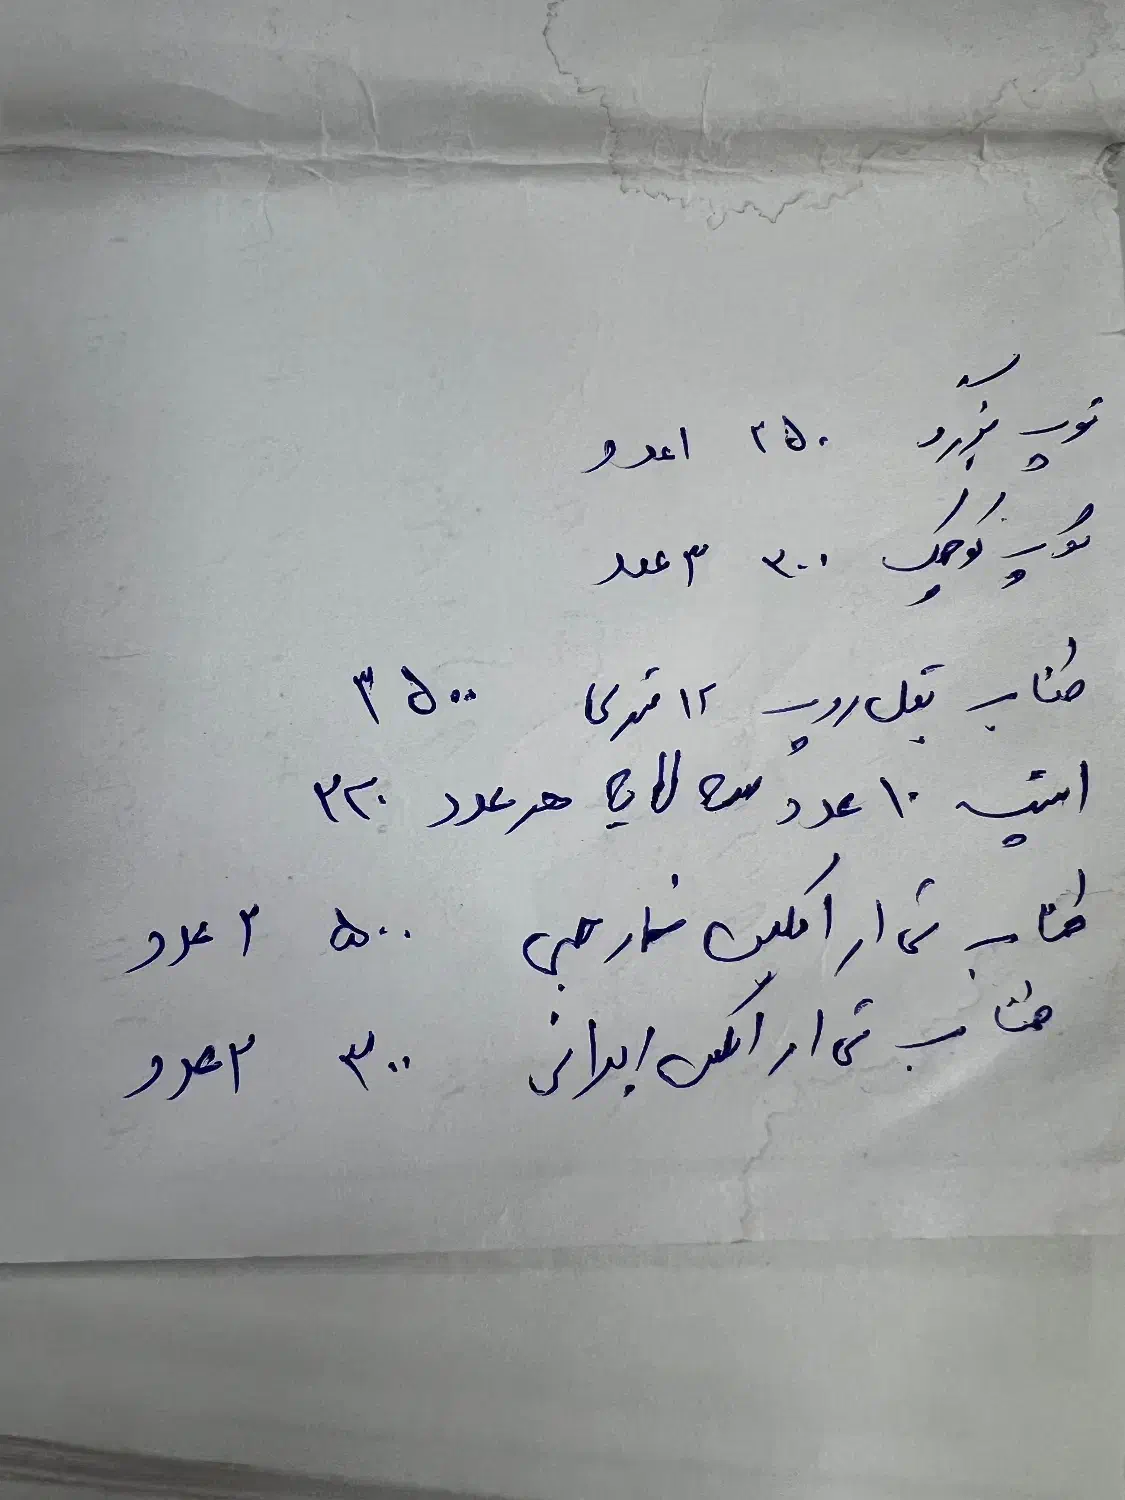 توپ بزرگ ۲۵۰ ۱ عدد
توپ کوچک ۳۰۰ ۳ عدد
طناب بتل روپ ۱۲ متری ۳۵۰۰
استپ ۱۰ عدد هر عدد ۳۲۰
طناب تی ار ایکس خارجی ۵۰۰ ۲ عدد
طناب تی ار ایکس ایرانی ۳۰۰ ۲ عدد